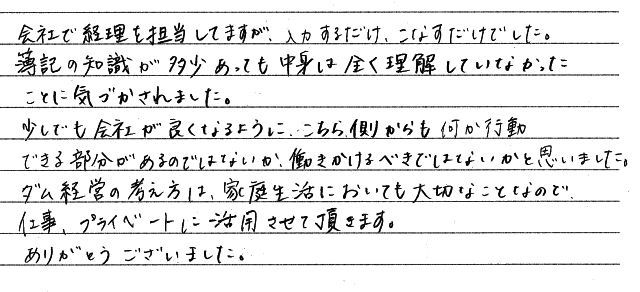 会社で経理を担当してますが、入力するだけ、こなすだけでした。
簿記の知識が多少あっても中身は全く理解していなかった
ことに気づかされました。
少しでも会社が良くなるように、こちら側からも何か行動
できる部分があるのではないか、働きかけるべきではないかと思いました。
ダム経営の考え方は、家庭生活においても大切なことなので、
仕事、プライベートに活用させて頂きます。
ありがとうございました。